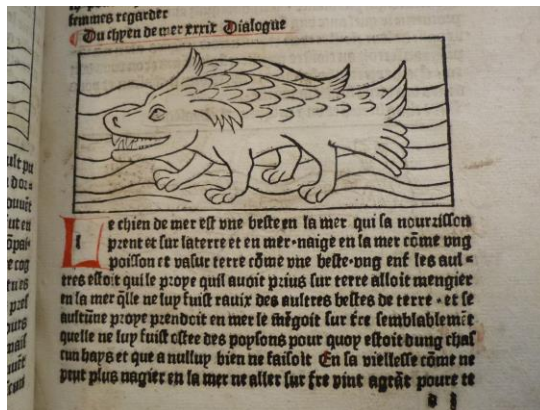 femmes regarder
Du chyen de mer xxxix Dialogue
Le chien de mer est vne beste en la mer qui sa nourrisson
prent et sur laterre et en mer·naige en la mer cõme vng
poisson et vasur terre cõme vne beste·vng enf les aul-
tres estoit qui le proye quil auoit prius sur terre alloit mengier
en la mer q̃lle ne luy fuist rauix des aultres bestes de terre·et se
aultũne proye prendoit en mer le mẽgoit sur t̃re semblablemẽt
quelle ne luy fuist ostee des poysons pour quoy estoit dung chas
cun hays et que a nulluy bien ne faisoit En sa viellesse cõme ne
peut plus nagier en la mer ne aller sur t̃re vint agrãt poure te